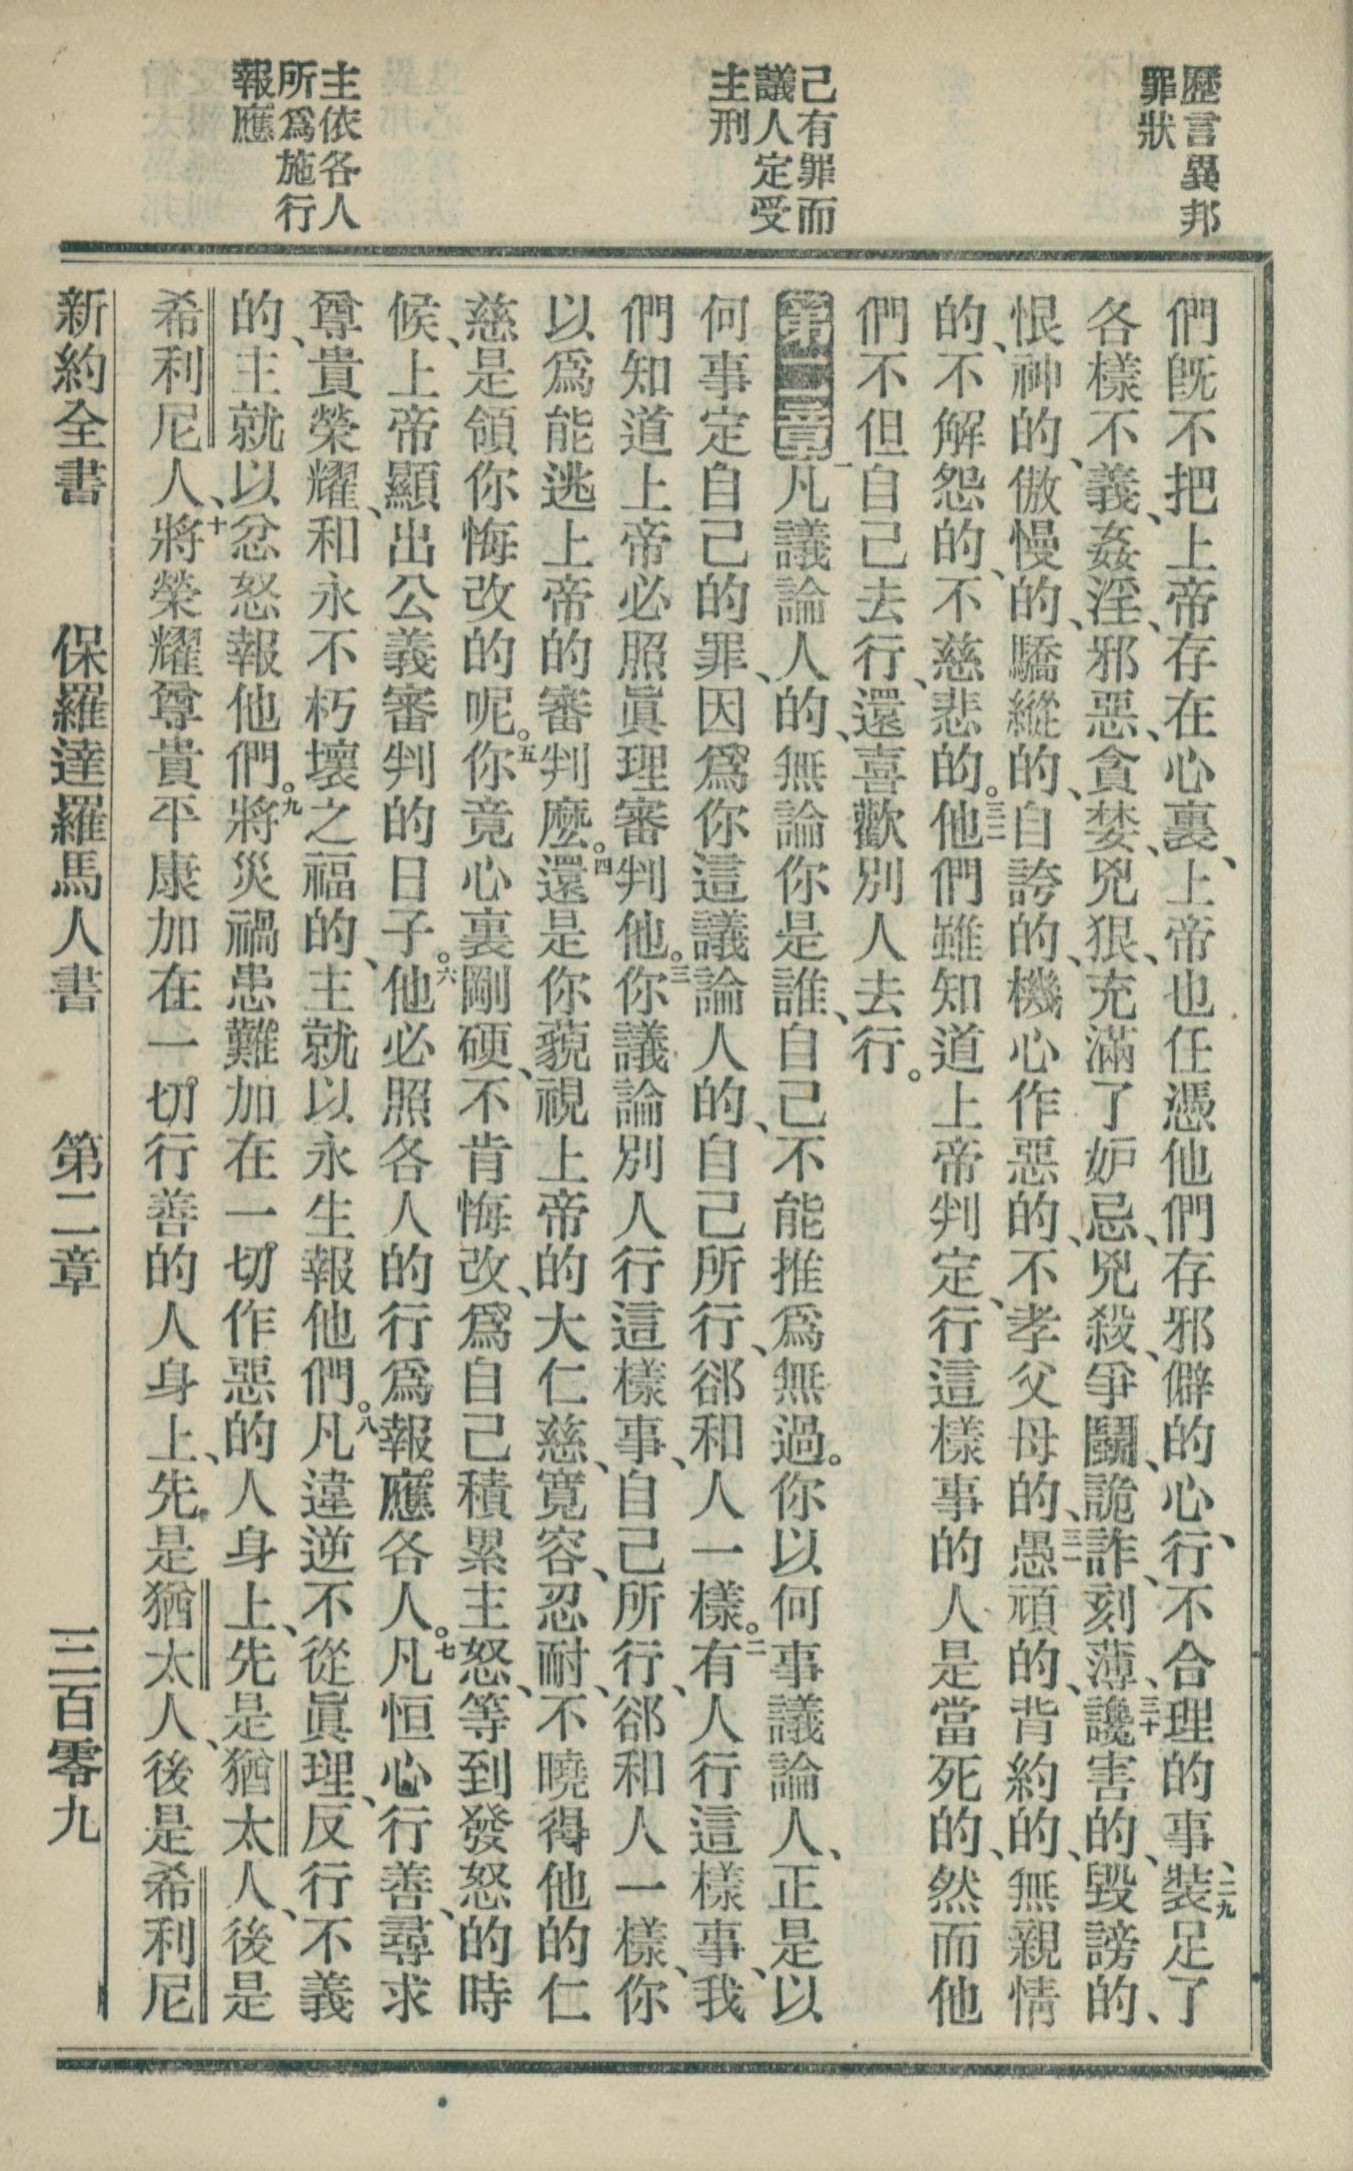 歷言異邦
罪狀
己有罪而
議人定受
主刑
主依各人
所爲施行
報應
們旣不把上帝存在心裏、上帝也任憑他們存邪僻的心、行不合理的事、二九裝足了
各樣不義、姦淫、邪惡、貪婪、兇狠、充滿了妒忌、兇殺、爭鬭、詭詐、刻薄、三十讒害的、毀謗的、
恨神的、傲慢的、驕縱的、自誇的、機心作惡的、不孝父母的、三一愚頑的、背約的、無親情
的、不解怨的、不慈悲的。三二他們雖知道上帝判定、行這樣事的人是當死的、然而他
們不但自己去行、還喜歡別人去行。
第二章一凡議論人的、無論你是誰、自己不能推爲無過。你以何事議論人、正是以
何事定自己的罪、因爲你這議論人的、自己所行、郤和人一樣。二有人行這樣事、我
們知道上帝必照眞理審判他。三你議論別人行這樣事、自己所行、郤和人一樣、你
以爲能逃上帝的審判麼。四還是你藐視上帝的大仁慈、寬容、忍耐、不曉得他的仁
慈是領你悔改的呢。五你竟心裏剛硬、不肯悔改、爲自己積累主怒、等到發怒的時
候、上帝顯出公義審判的日子。六他必照各人的行爲報應各人。七凡恒心行善、尋求
尊貴榮耀、和永不朽壞之福的、主就以永生報他們。八凡違逆不從眞理、反行不義
的、主就以忿怒報他們。九將災禍患難加在一切作惡的人身上、先是猶太人、後是
希利尼人、十將榮耀尊貴平康加在一切行善的人身上、先是猶太人、後是希利尼
新約全書 保羅達羅馬人書 第二章 三百零九